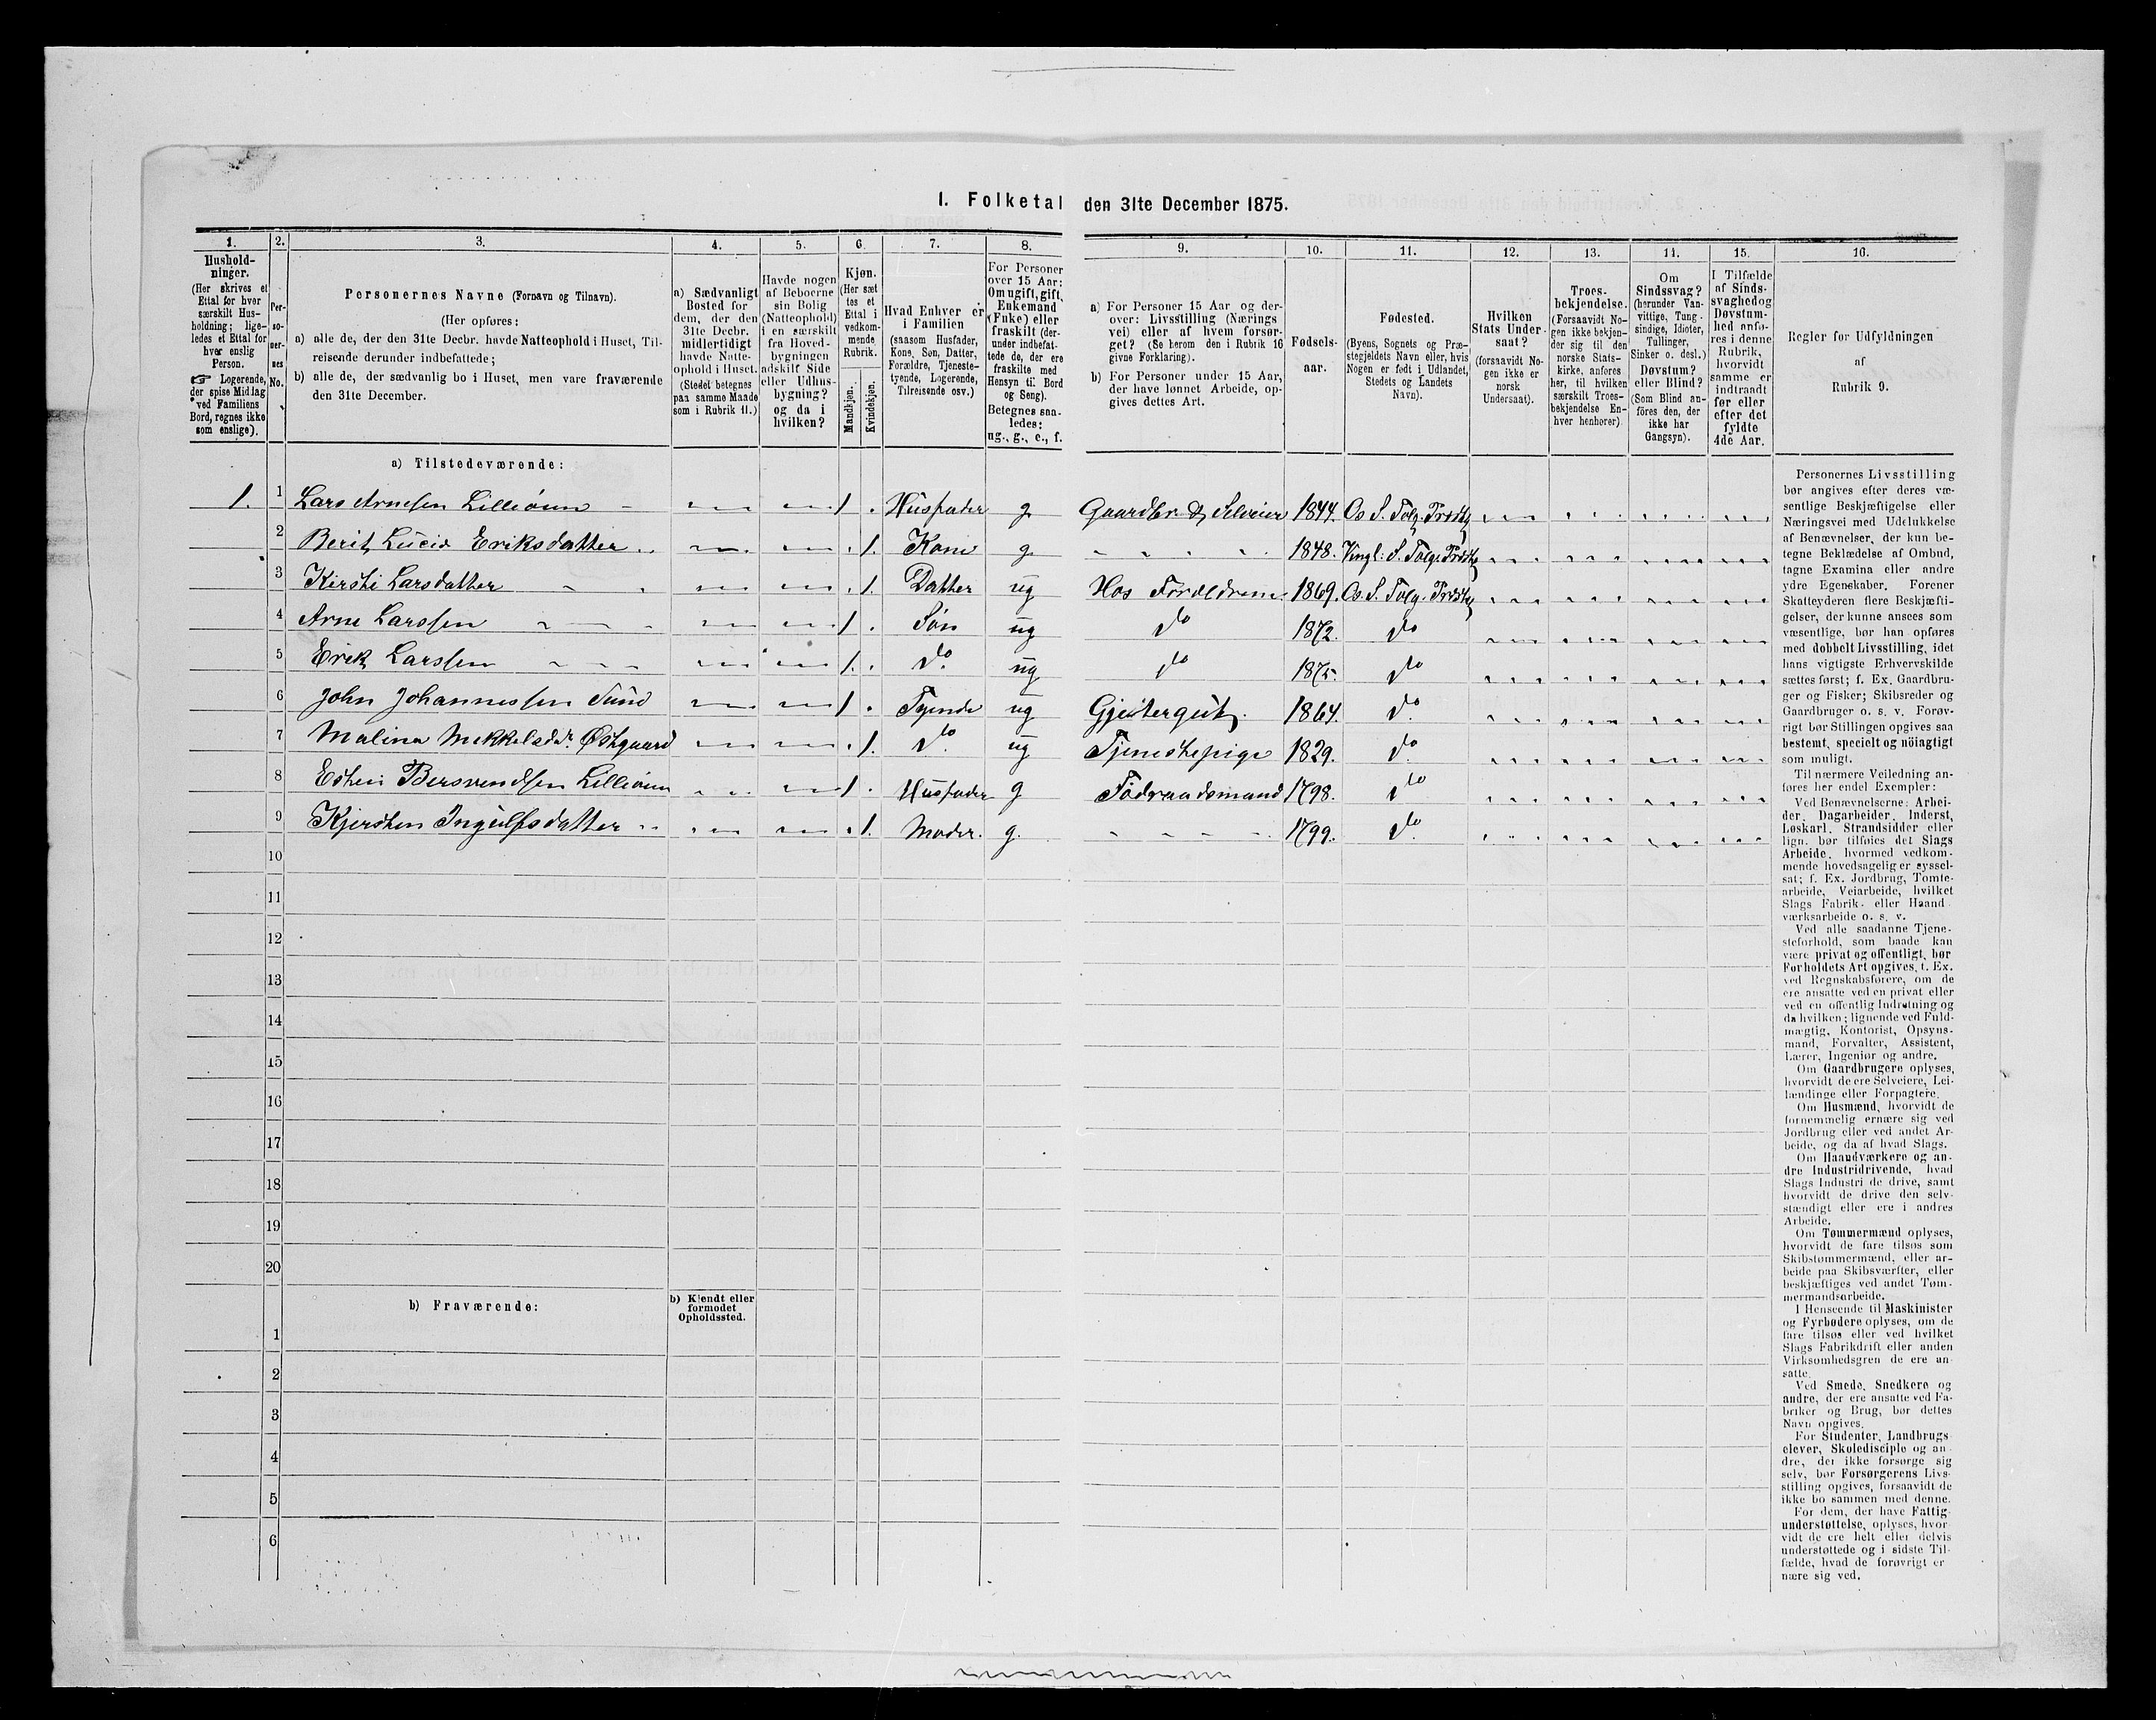 I. Folketal den 31te December 1875.
1. 2. 3. 4. 5. 6. 7. 8. 9. 10. 11. 12. 13. 14. 15. 16.
Hushold-
ninger.
(Her skrives et
Ettal for hver
særskilt Hus-
holdning; lige-
ledes et Ettal for
hver enslig
Person.
☞ Logerende,
der spise Middag
ved Familiens
Bord, regnes ikke
som enslige).
Per-
so-
ner-
nes
No.
Personernes Navne (Fornavn og Tilnavn).
(Her opføres:
a) alle de, der den 31te Decbr. havde Natteophold i Huset, Til-
reisende derunder indbefattede;
b) alle de, der sædvanlig bo i Huset, men vare fraværende
den 31te December.
a) Sædvanligt
Bosted for
dem, der den
31te Decbr.
midlertidigt
havde Natte-
ophold i Huset.
(Stedet betegnes
paa samme Maade
som i Rubrik 11.)
Havde nogen
af Beboerne
sin Bolig
(Natteophold)
i en særskilt
fra Hoved-
bygningen
adskilt Side
eller Udhus-
bygning?
og da i
hvilken?
Kjøn.
(Her sæt
tes et
Ettal i
vedkom-
mende
Rubrik.
Mandkjøn.
Kvindekjøn.
Hvad Enhver er
i Familien
(saasom Husfader,
Kone, Søn, Datter,
Forældre, Tjeneste-
tyende, Logerende,
Tilreisende osv.)
For Personer
over 15 Aar:
Om ugift, gift,
Enkemand
(Enke) eller
fraskilt (der-
under indbefat-
tede de, der ere
fraskilte med
Hensyn til Bord
og Seng).
Betegnes saa-
ledes:
ug., g., e., f.
a) For Personer 15 Aar og der-
over: Livsstilling (Nærings
vei) eller af hvem forsør-
get? (Se herom den i Rubrik 16
givne Forklaring).
b) For Personer under 15 Aar,
der have lønnet Arbeide, op-
gives dettes Art.
Fødsels-
aar.
Fødested.
(Byens, Sognets og Præ-
stegjeldets Navn eller, hvis
Nogen er født i Udlandet,
Stedets og Landets
Navn).
Hvilken
Stats Under-
saat?
(forsaavidt No-
gen ikke er
norsk
Undersaat).
Troes-
bekjendelse.
(Forsaavidt No-
gen ikke bekjen-
der sig til den
norske Stats-
kirke, anføres
her, til hvilken
særskilt Troes-
bekjendelse En-
hver henhører)
Om
Sindssvag?
(herunder Van-
vittige, Tung-
sindige, Idioter,
Tullinger,
Sinker o. desl.)
Døvstum?
eller Blind?
(Som Blind an-
føres den, der
ikke har
Gangsyn).
I Tilfælde
af Sinds-
svaghed og
Døvstum-
hed anfø-
res i denne
Rubrik,
hvorvidt
samme er
indtraadt
før eller
efter det
fyldte
4de Aar.
Regler for Udfyldningen
af
Rubrik 9.
a) Tilstedeværende:
1. 1 Lars Arnesen Lilleöien 1 Husfader g. Gaardbr. & Selveier 1844. Os S. Tolg. Prdstg
2 Berit Lucia Eriksdatter 1. Kone g. 1848. Vingl: S. Tolg. Prdstg
3 Kirsti Larsdatter 1. Datter ug Hos Forældrene 1869. Os. S. Tolg. Prdstg
4 Arne Larssen 1 Søn ug do 1872. do
5 Erik Larssen 1. do. ug do 1875. do
6 John Johannessen Sund 1 Tyende ug Gjætergut 1864. do.
7 Malina Mekkelsdtr. Østgaard 1. do. ug Tjenestepige 1829. do.
8 Esten Bersvendsen Lilleöien 1 Husfader g Föderaadsmand 1798. do
9 Kjersten Ingulfsdatter 1. Moder. g. 1799. do.
10
11
12
13
14
15
16
17
18
19
20
b) Fraværende:
b) Kjendt eller
formodet
Opholdssted.
1
2
3
4
5
6
Personernes Livsstilling
bør angives efter deres væ-
sentlige Beskjæftigelse eller
Næringsvei med Udelukkelse
af Benævnelser, der kun be-
tegne Beklædelse af Ombud,
tagne Examina eller andre
ydre Egenskaber. Forener
Skatteyderen flere Beskjæfti-
gelser, der kunne ansees som
væsentlige, bør han opføres
med dobbelt Livsstilling, idet
hans vigtigste Erhvervskilde
sættes først; f. Ex. Gaardbru-
ger og Fisker; Skibsreder og
Gaardbruger o. s. v. Forøv-
rigt bør Stillingen opgives saa
bestemt, specielt og nöiagtigt
som muligt.
Til nærmere Veiledning an-
føres her endel Exempler:
Ved Benævnelserne: Arbei-
der, Dagarbeider, Inderst,
Løskarl, Strandsidder eller
lign. bør tilføies det Slags
Arbeide, hvormed vedkom-
mende hovedsagelig er syssel-
sat; f. Ex. Jordbrug, Tomte-
arbeide, Veiarbeide, hvilket
Slags Fabrik- eller Haand
værksarbeide o. s. v.
Ved alle saadanne Tjene-
steforhold, som baade kan
være privat og offentligt, bør
Forholdets Art opgives, f. Ex.
ved Regnskabsførere, om de
ere ansatte ved en privat eller
ved en offentlig Indretning og
da hvilken; lignende ved Fuld-
mægtig, Kontorist, Opsyns-
mand, Forvalter, Assistent,
Lærer, Ingeniør og andre.
Om Gaardbrugere oplyses,
hvorvidt de ere Selveiere, Lei-
lændinge eller Forpagtere.
Om Husmænd, hvorvidt de
fornemmelig ernære sig ved
Jordbrug eller ved andet Ar-
beide, og da af hvad Slags.
Om Haandværkere og an-
dre Industridrivende, hvad
Slags Industri de drive, samt
hvorvidt de drive den selv-
stændigt eller ere i andres
Arbeide.
Om Tømmermænd oplyses,
hvorvidt de fare tilsøs som
Skibstømmermænd, eller ar-
beide paa Skibsværfter, eller
beskjæftiges ved andet Tøm-
mermandsarbeide.
I Henseende til Maskinister
og Fyrbødere oplyses, om de
fare tilsøs eller ved hvilket
Slags Fabrikdrift eller anden
Virksomhedsgren de ere an-
satte.
Ved Smede, Snedkere og
andre, der ere ansatte ved Fa-
briker og Brug, bør dettes
Navn opgives.
For Studenter, Landbrugs-
elever, Skoledisciple og an-
dre, der ikke forsørge sig
selv, bør Forsørgerens Livs-
stilling opgives, forsaavidt de
ikke bo sammen med denne.
For dem, der have Fattig-
understøttelse, oplyses, hvor-
vidt de ere helt eller delvis
understøttede og i sidste Til-
fælde, hvad de forøvrigt er
nære sig ved.